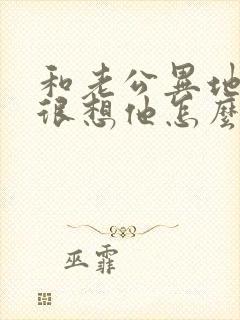 和老公异地
很想他怎麽
巫霏